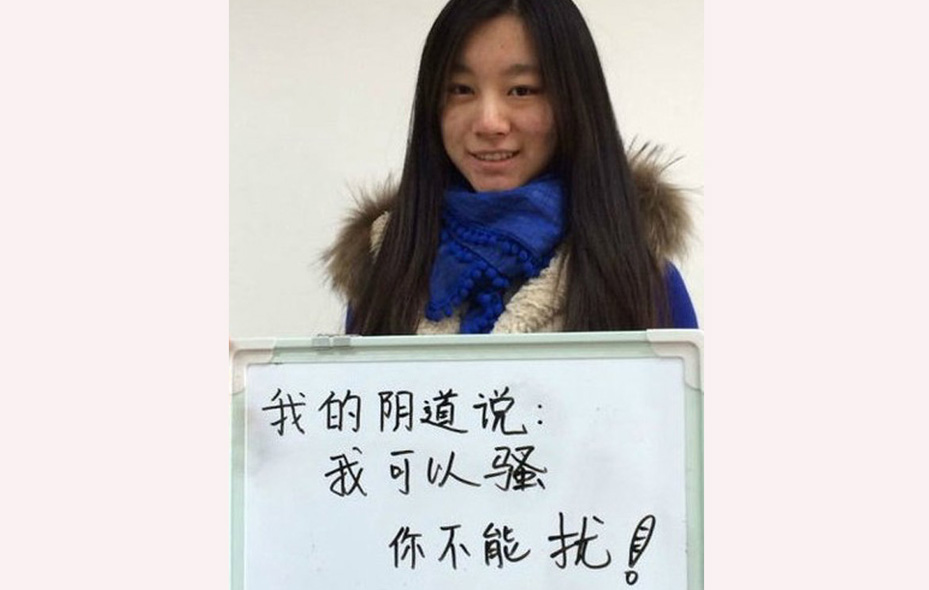 我的阴道说:
我可以骚
你不能扰!